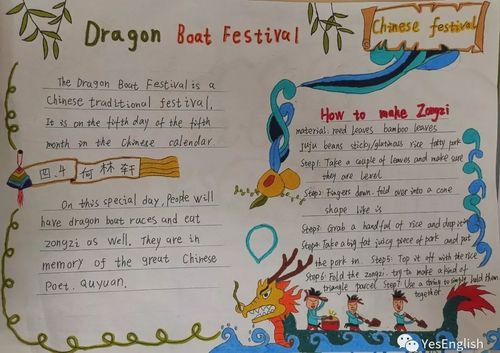 Dragon Boat Festival
Chinese festival
The Dragon Boat Festival is a
Chinese traditional festival.
It is on the fifth day of the fifth
month in the Chinese calendar
四.4 何林轩
On this special day, People will
have dragon boat races and eat
zongzi as well. They are in
memory of the great Chinese
Poet. quyuan.
How to make Zongzi
material: reed leaves bamboo leaves
juju beans sticky/glutinous rice fatty pork
Step1: Take a couple of leaves and make sure
they are level
Step2: Fingers down. fold over into a cone
shape like is
Step3: Grab a handful of rice and drop it in
Step4: Take a big fat juicy piece of pork and put
the pork in. Step5: Top it off with the rice
Step6: Fold the zongzi. try to make a kind of
triangle parcel Step7: Use a string to simple hold them
together
YesEnglish